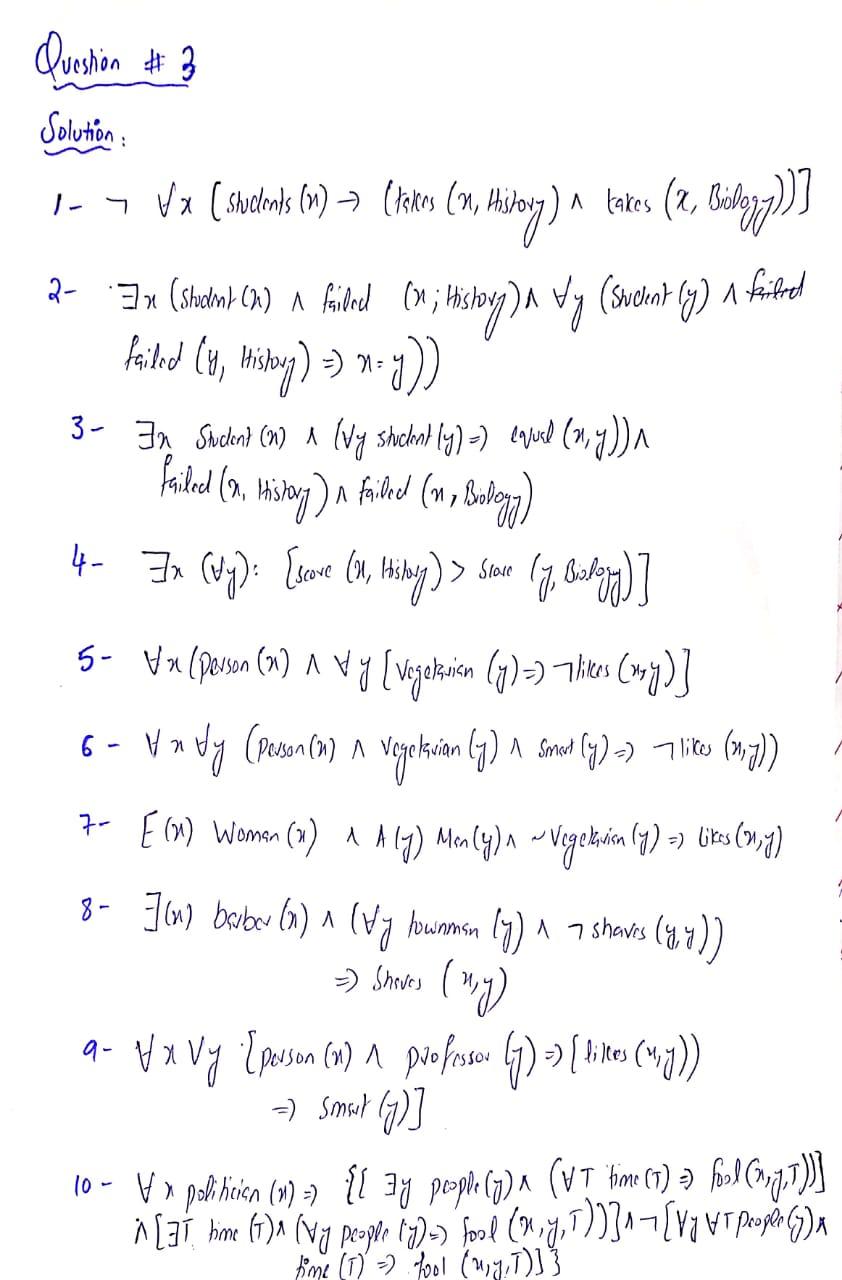 Question # 3
Solution:
1- ¬ ∀x [students(x) → (takes (x, History) ∧ takes (x, Biology))]
2- ∃x (student(x) ∧ failed (x; History) ∧ ∀y (student(y) ∧ failed
failed (y, History) => x=y))
3- ∃x Student(x) ∧ (∀y student(y) => equal (x,y)) ∧
failed (x, History) ∧ failed (x, Biology)
4- ∃x (∀y): [score (x, History) > score (y, Biology)]
5- ∀x (person(x) ∧ ∀y [vegetarian (y) => ¬likes (x,y)]
6- ∀x ∀y (person(x) ∧ vegetarian(y) ∧ smart(y) => ¬likes (x,y))
7- E(x) Woman(x) ∧ A(y) Man(y) ∧ ~Vegetarian(y) => likes(x,y)
8- ∃(x) barber(x) ∧ (∀y townman (y) ∧ ¬shaves(y,y))
=> shaves (x,y)
9- ∀x ∀y [person(x) ∧ professor (y) => [likes(x,y))
=> smart (y)]
10- ∀x politician(x) => {[ ∃y people(y) ∧ (∀T time(T) => fool(x,y,T))]
∧ [∃T time (T) ∧ (∀y people (y) => fool (x,y,T))] ∧ ¬[∀y ∀T people(y) ∧
time (T) => fool (x,y,T)]}